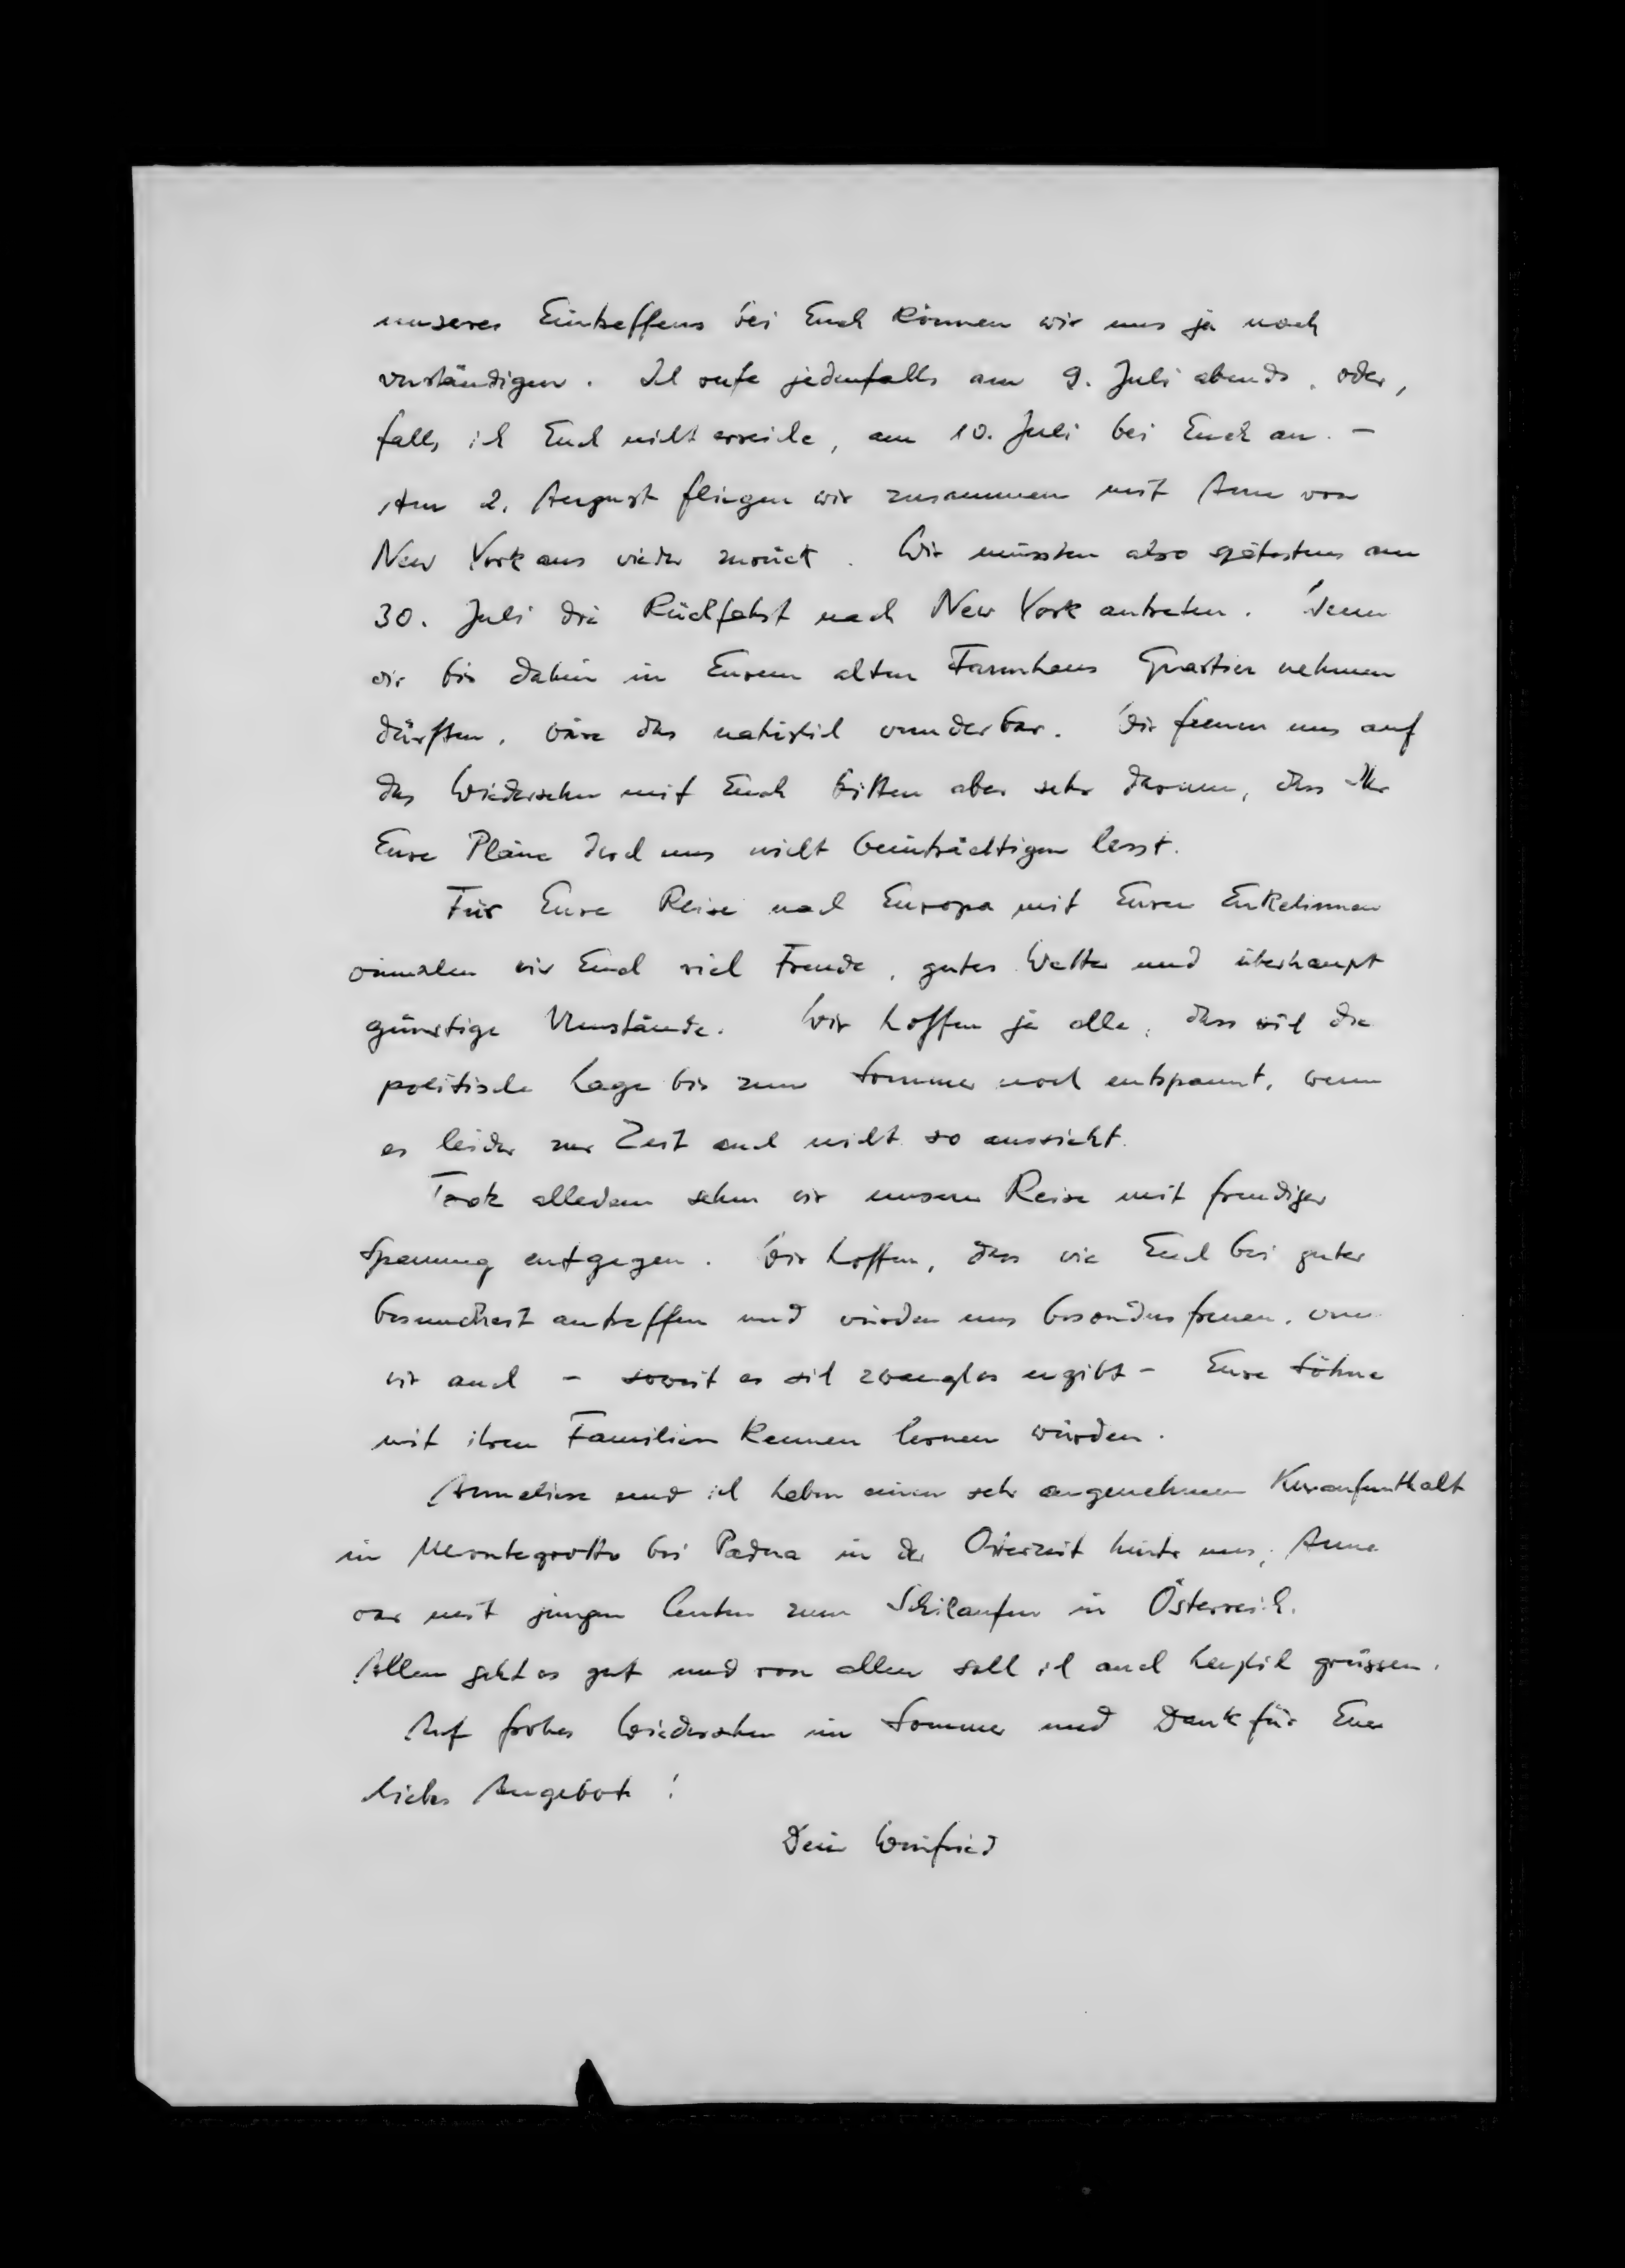 unseres Eintreffens bei Euch können wir uns ja noch
verständigen. Ich rufe jedenfalls am 9. Juli abends, oder,
falls ich Euch nicht erreiche, am 10. Juli bei Euch an. –
Am 2. August fliegen wir zusammen mit Anne von
New York aus wieder zurück. Wir müssten also spätestens am
30. Juli die Rückfahrt nach New York antreten. Wenn
wir bis dahin in Eurem alten Farmhaus Quartier nehmen
dürften, wäre das natürlich wunderbar. Wir freuen uns auf
das Wiedersehen mit Euch bitten aber sehr darum, dass Ihr
Eure Pläne durch uns nicht beeinträchtigen lasst.
Für Eure Reise nach Europa mit Euren Enkelinnen
wünschen wir Euch viel Freude, gutes Wetter und überhaupt
günstige Umstände. Wir hoffen ja alle, dass sich die
politische Lage bis zum Sommer noch entspannt, wenn
es leider zur Zeit auch nicht so aussieht.
Trotz alledem sehen wir unserer Reise mit freudiger
Spannung entgegen. Wir hoffen, dass wir Euch bei guter
Gesundheit antreffen und würden uns besonders freuen, wenn
wir auch – soweit es sich zwanglos ergibt – Eure Söhne
mit ihren Familien kennen lernen würden.
Anneliese und ich haben einen sehr angenehmen Kuraufenthalt
in Montegrotto bei Padua in der Osterzeit hinter uns, Anne
war mit jungen Leuten zum Schilaufen in Österreich.
Allen geht es gut und von allen soll ich auch herzlich grüssen.
Auf frohes Wiedersehen im Sommer und Dank für Euer
liebes Angebot!
Dein Winfried